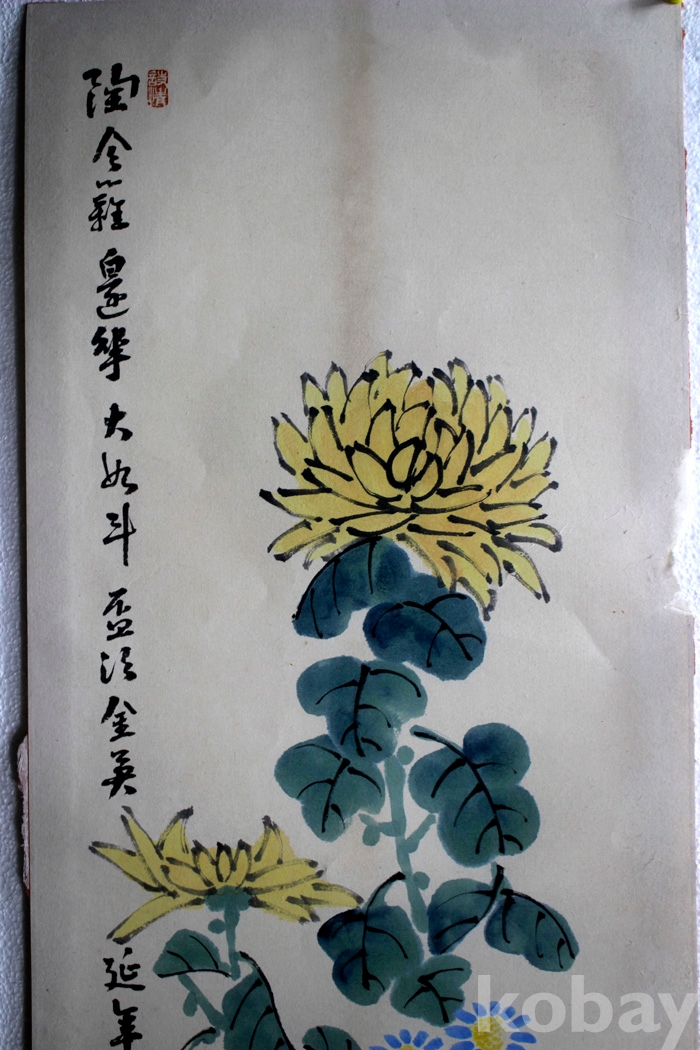 陶令籬邊華大如斗盃金英延年
kobay